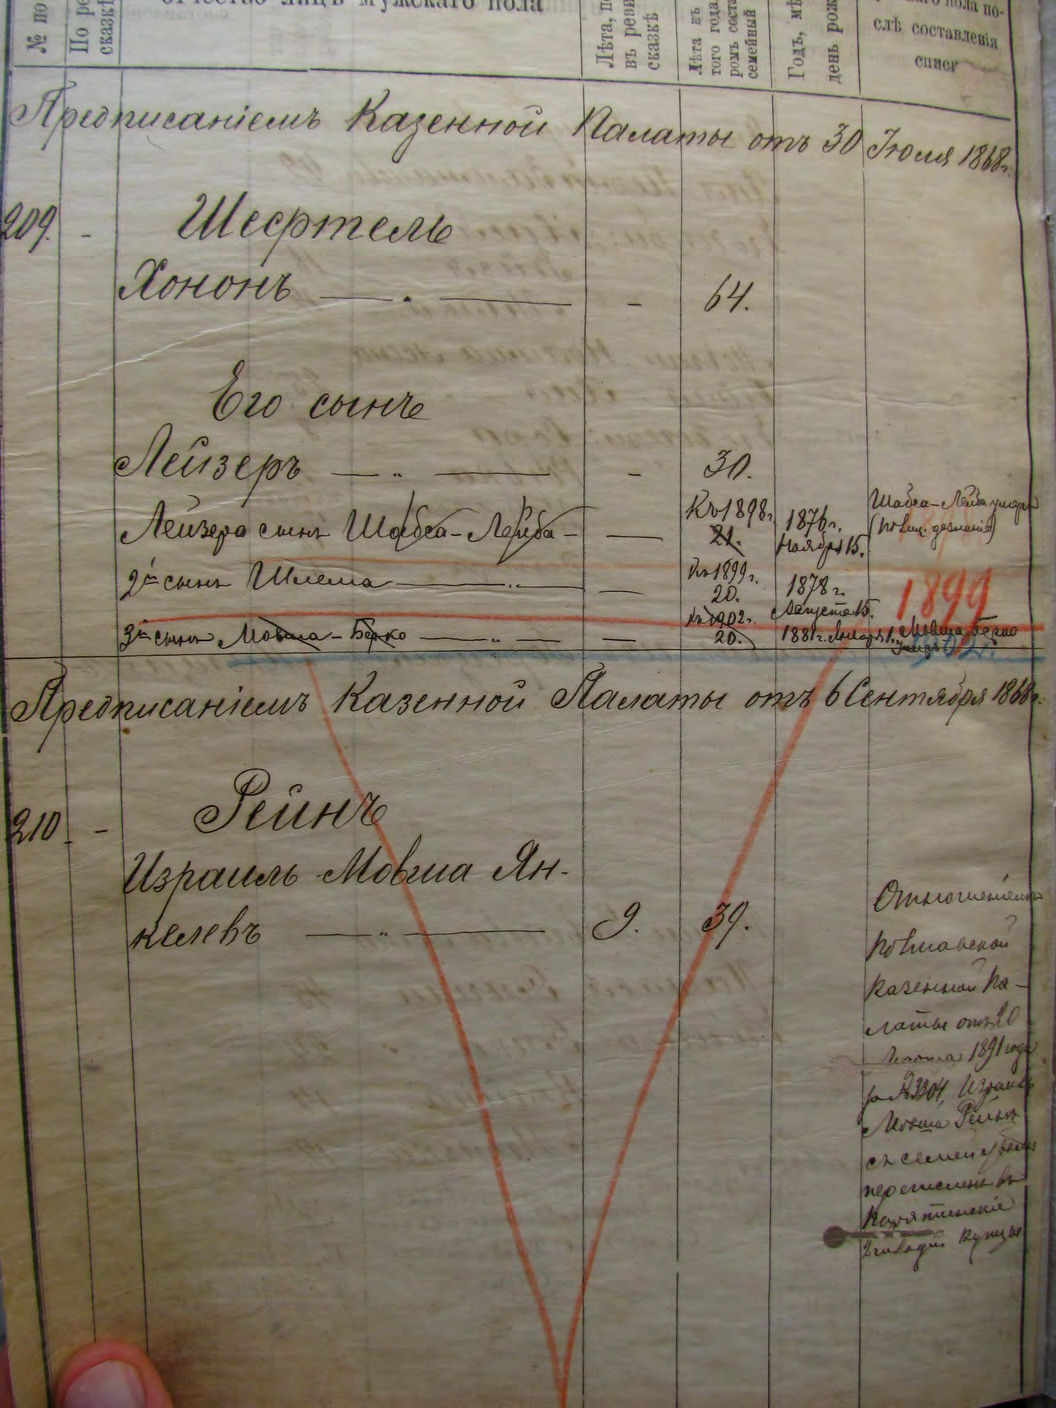 № по
По ре
сказкѣ
отчество лицъ мужскаго пола
Лѣта, по
въ реви
сказкѣ
Лѣта къ
того года
ромъ соста
семейный
Годъ, мѣ
день рож
пола по-
слѣ составленія
списк
Предписаніемъ Казенной Палаты отъ 30 Іюля 1868г.
209. - Шефтель
Хононъ — „ — - 64.
Его сынъ
Лейзеръ — „ — - 30.
Лейзера сынъ Шабса-Лейба - — Къ 1898г. 21. 1876г. Ноября 15. Шабса-Лейба умеръ
2й сынъ Шлема — „ — — Къ 1899г. 20. 1878г. Августа 15. 1899
3й сынъ Мовша-Берко — „ — — Къ 1902г. 20. 1881г. Января 1. Мовша Берко
1902г.
Предписаніемъ Казенной Палаты отъ 6 Сентября 1868г.
210. - Рейнъ
Израиль Мовша Ян-
келевъ — „ — 9. 39.
Отношеніемъ
Полтавской
Казенной Па-
латы отъ 20
1891 года
за № 3204, Израиль
Мовша Рейнъ
съ семействомъ
перечисленъ въ
2 гильдіи купцы